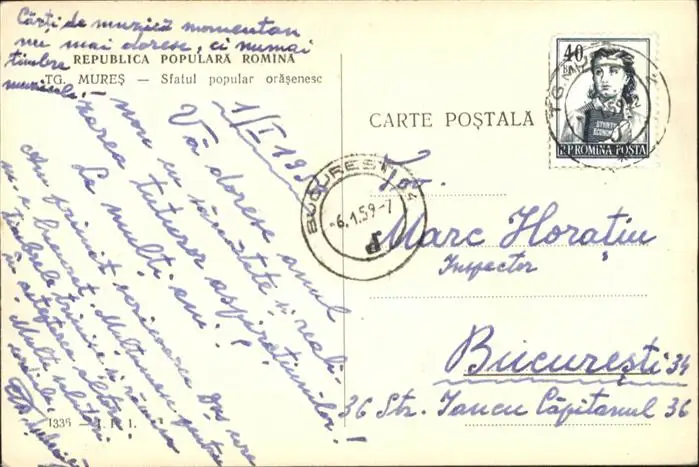 Cărți de muzică momentan
nu mai doresc, ci numai
timbre
muzicale, —
REPUBLICA POPULARĂ ROMÎNĂ
TG. MUREȘ — Sfatul popular orășenesc
1/I 195
Vă doresc anul
nou cu sănătate și reali-
zarea tuturor aspirațiunilor. —
La mulți ani!
Am primit scrisoarea
m-a bucurat. Mulțumesc pentru
timbrele trimise și rămân
în așteptarea altor
Multe salutări
cordiale,
1336 — I. P. I.
CARTE POȘTALĂ
40
BANI
ȘTIINȚE
ECONOM
R.P. ROMINA POSTA
BUCUREȘTI
-6.1.59-7
Tov.
Marc Horațiu
Inspector
București 34
36 Str. Iancu Căpitanul 36